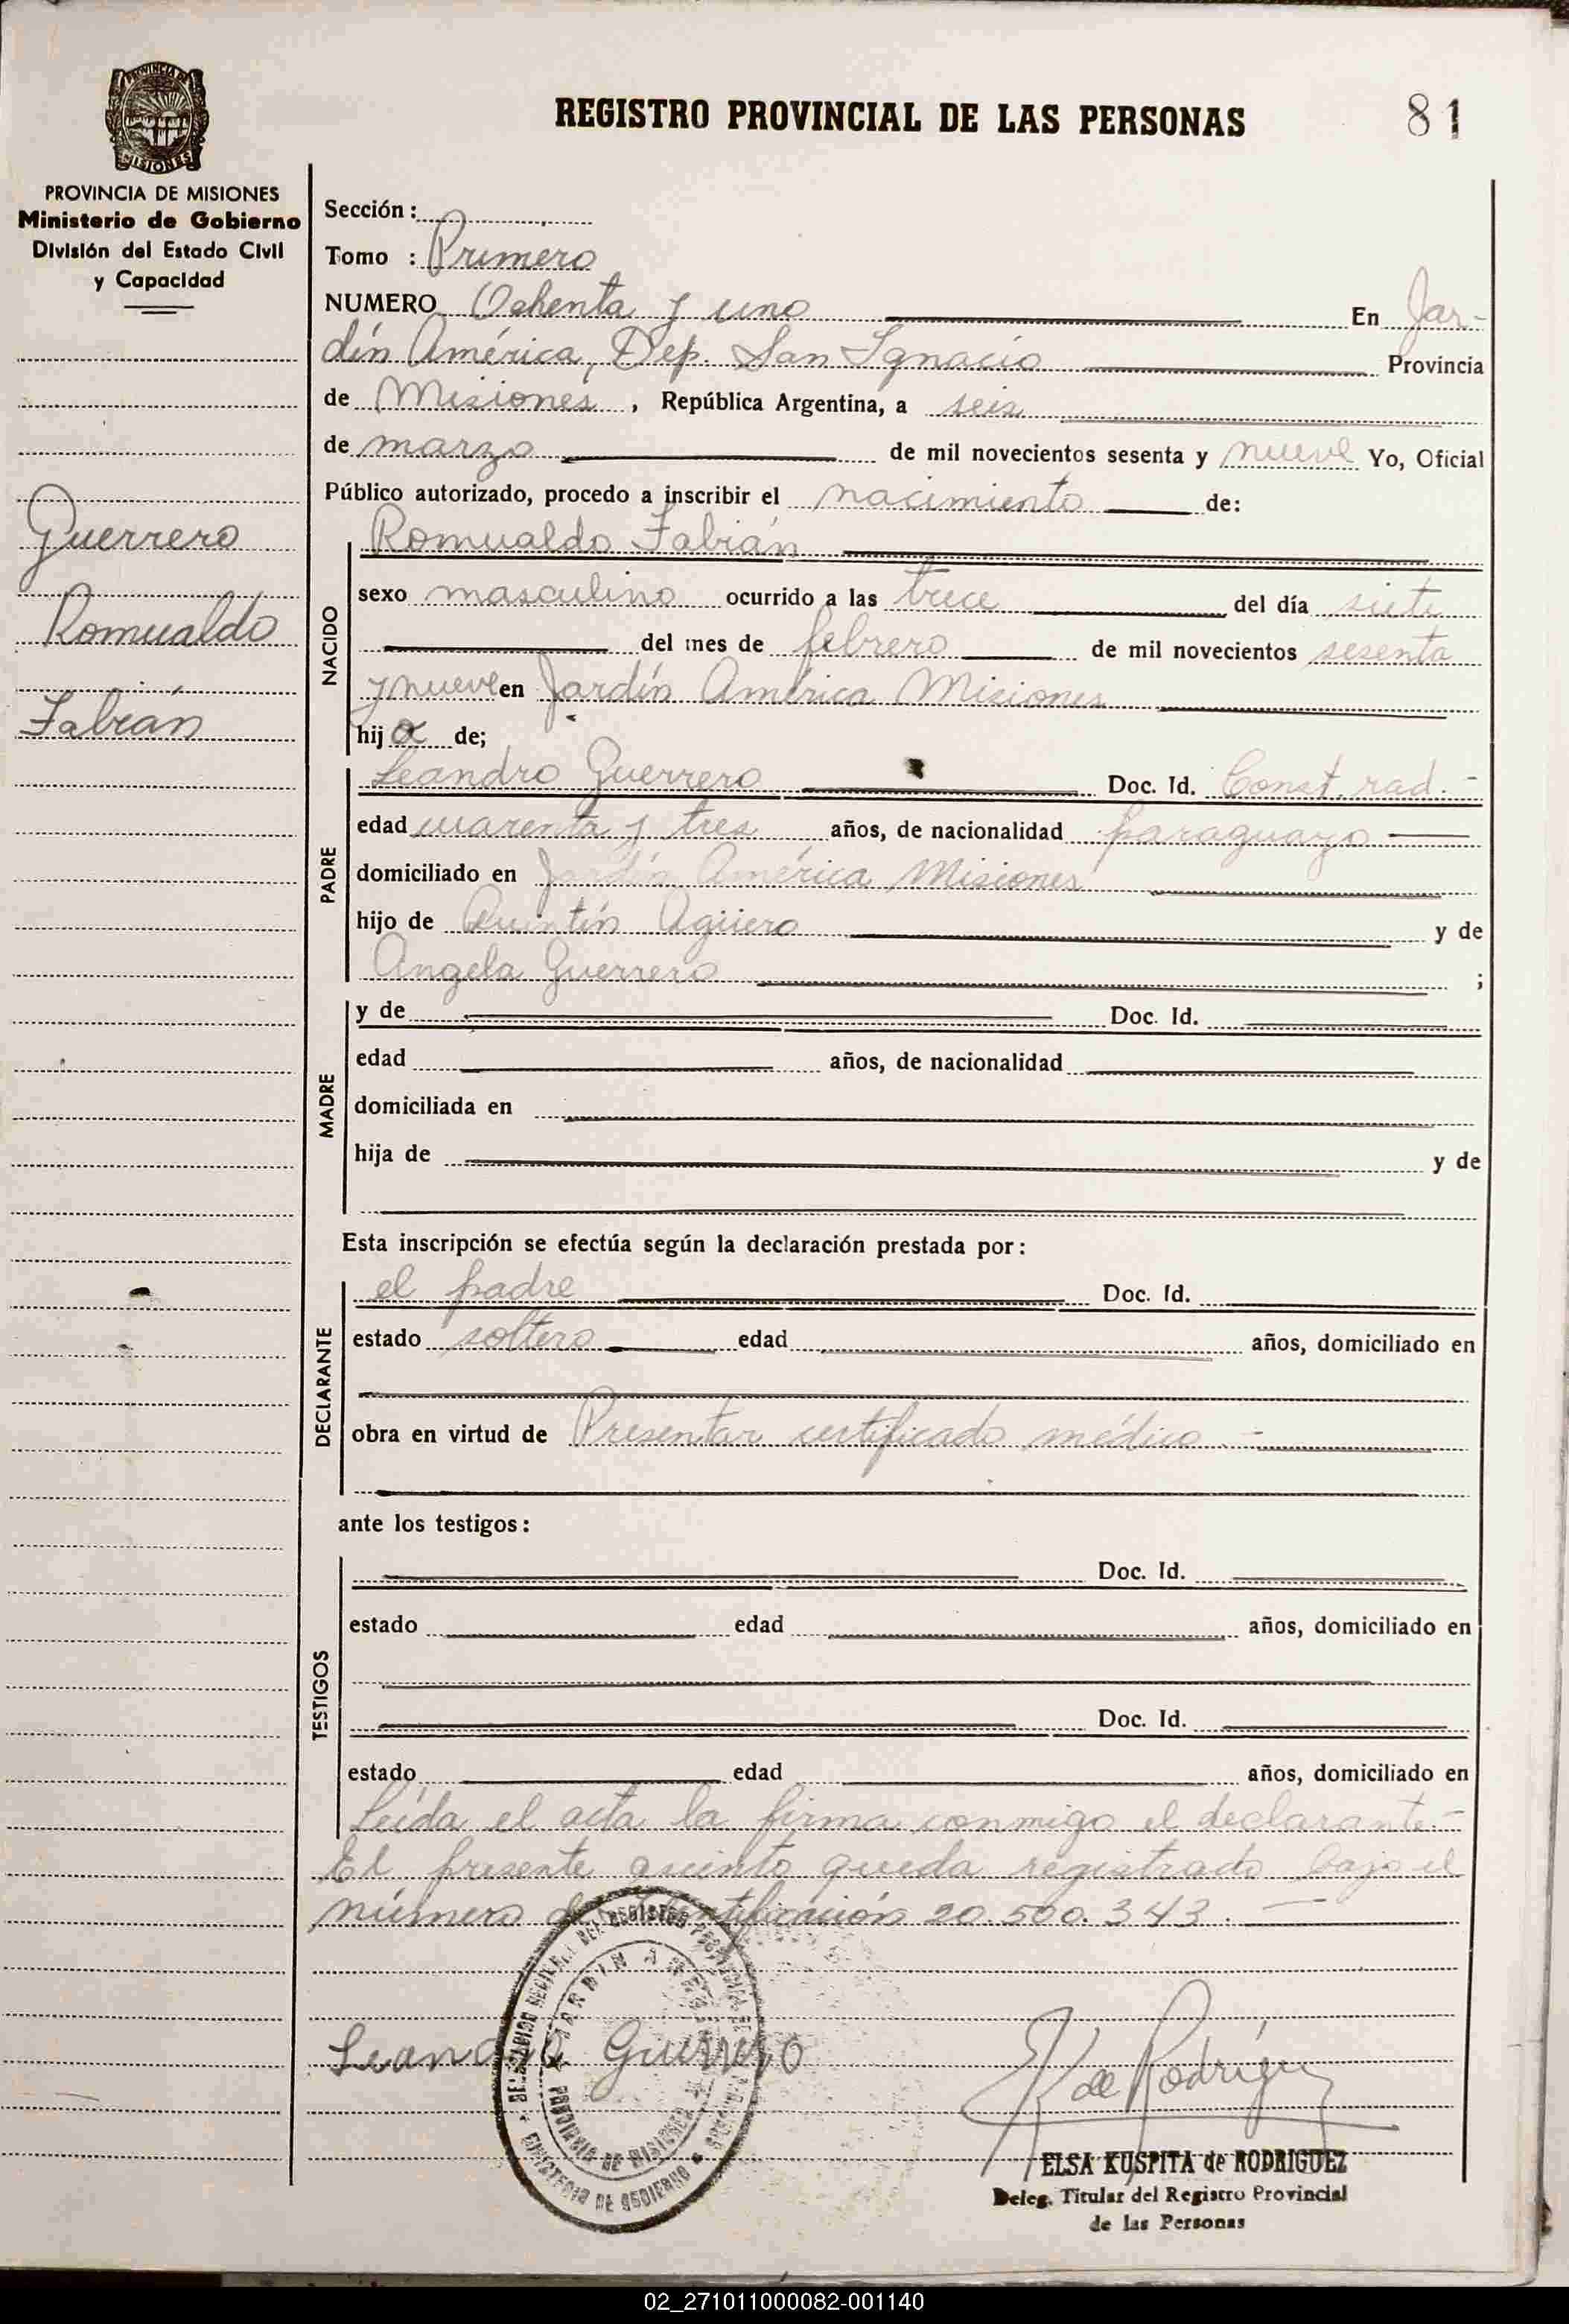 REGISTRO PROVINCIAL DE LAS PERSONAS
81
PROVINCIA DE MISIONES
PROVINCIA DE MISIONES
Ministerio de Gobierno
División del Estado Civil
y Capacidad
Guerrero
Romualdo
Fabián
Sección:
Tomo : Primero
NUMERO Ochenta y uno En Jar-
dín América, Dep. San Ignacio Provincia
de Misiones, República Argentina, a seis
de marzo de mil novecientos sesenta y nueve Yo, Oficial
Público autorizado, procedo a inscribir el nacimiento de:
NACIDO
Romualdo Fabián
sexo masculino ocurrido a las trece del día siete
del mes de febrero de mil novecientos sesenta
y nueve en Jardín América Misiones
hijo de;
PADRE
Leandro Guerrero Doc. Id. Const. rad.-
edad cuarenta y tres años, de nacionalidad paraguayo
domiciliado en Jardín América Misiones
hijo de Quintín Agüero y de
Angela Guerrero ;
MADRE
y de Doc. Id.
edad años, de nacionalidad
domiciliada en
hija de y de
Esta inscripción se efectúa según la declaración prestada por:
DECLARANTE
el padre Doc. Id.
estado soltero edad años, domiciliado en
obra en virtud de Presentar certificado médico.-
ante los testigos:
TESTIGOS
Doc. Id.
estado edad años, domiciliado en
Doc. Id.
estado edad años, domiciliado en
Leída el acta la firma conmigo el declarante.-
El presente asiento queda registrado bajo el
número de identificación 20.500.343.-
Leandro Guerrero
E K de Rodríguez
JARDIN AMERICA
PROVINCIA DE MISIONES
MINISTERIO DE GOBIERNO
ELSA KUSPITA de RODRIGUEZ
Deleg. Titular del Registro Provincial
de las Personas
02_271011000082-001140